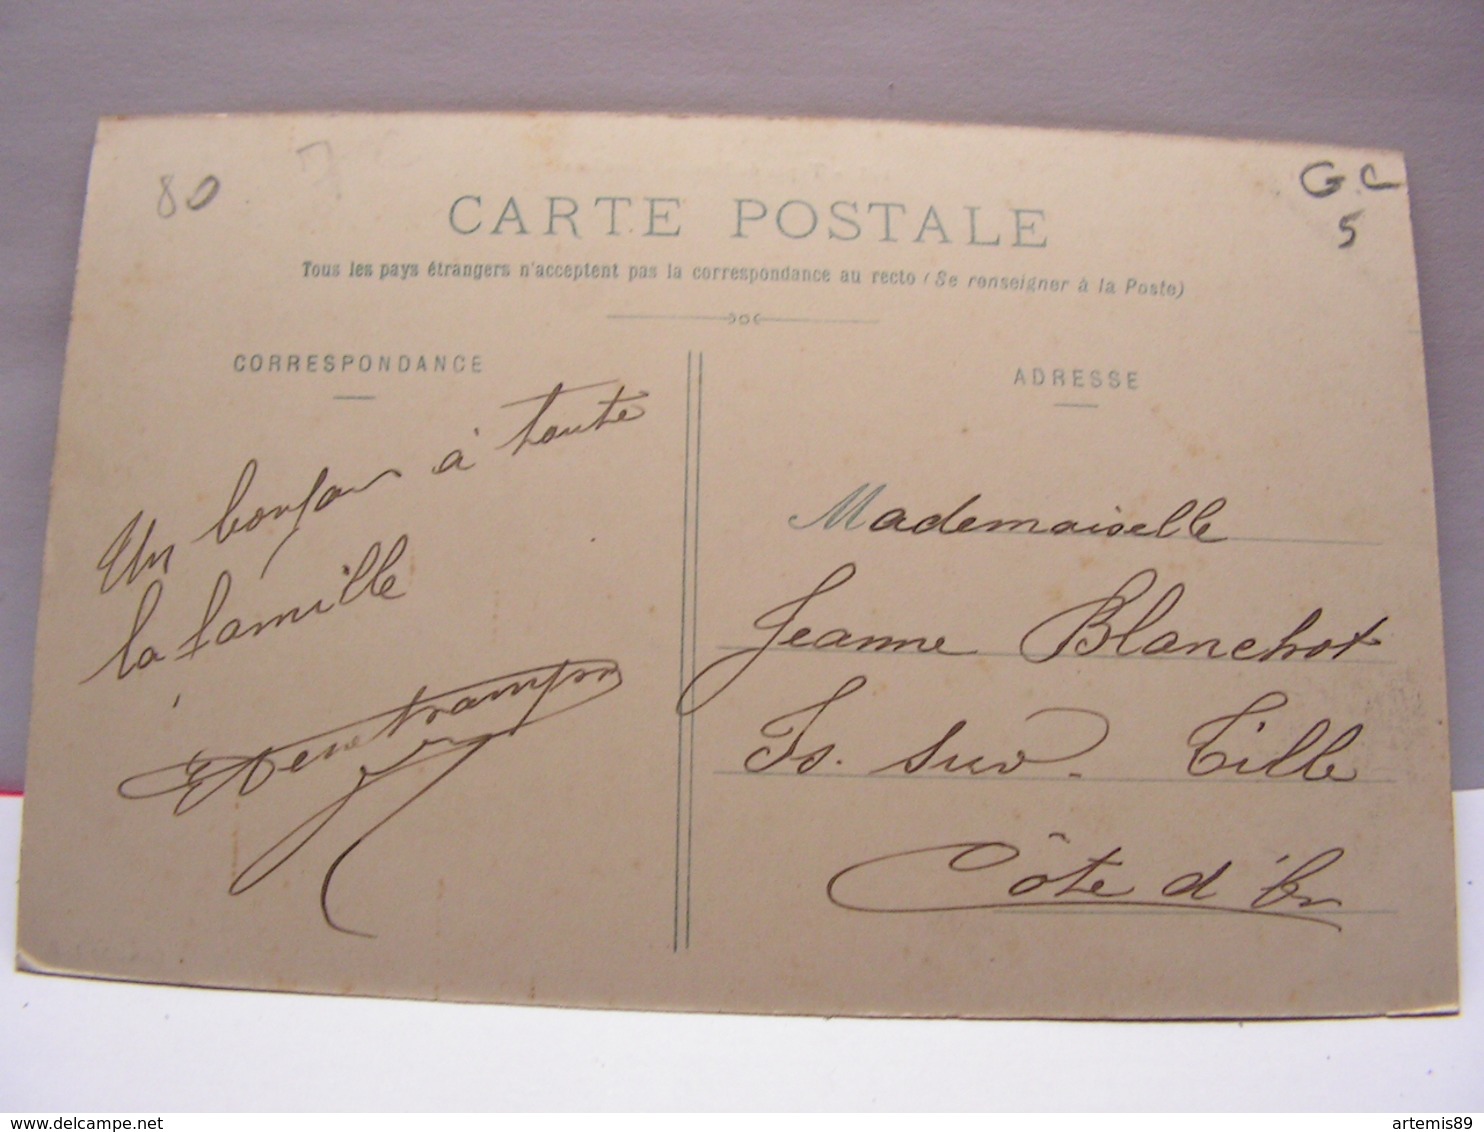 80
7
G C
5
CARTE POSTALE
Tous les pays étrangers n'acceptent pas la correspondance au recto (Se renseigner à la Poste)
CORRESPONDANCE
Un bonjour à toute
la famille
ADRESSE
Mademaiselle
Jeanne Blanchot
Is. sur. Tille
Côte d'Or
delcampe.net
artemis89